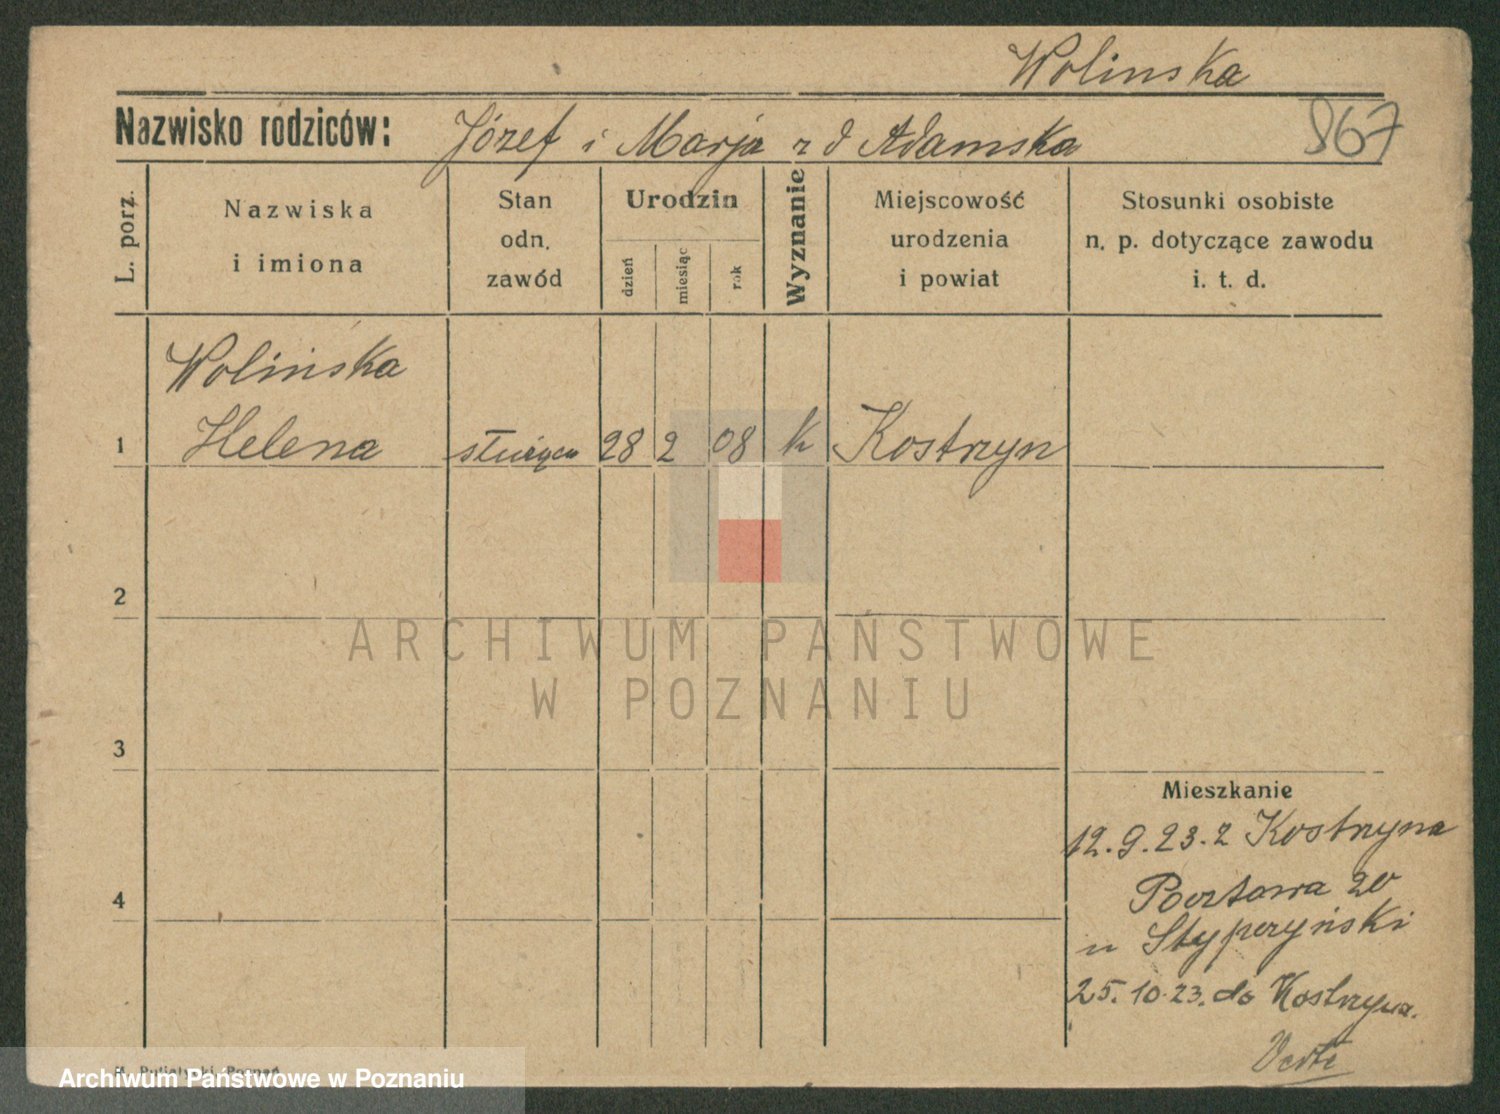 Wolinska
867
Nazwisko rodziców: Józef i Marja z d Adamska
L. porz.
Nazwiska
i imiona
Stan
odn.
zawód
Urodzin
dzień
miesiąc
rok
Wyznanie
Miejscowość
urodzenia
i powiat
Stosunki osobiste
n. p. dotyczące zawodu
i. t. d.
Wolińska
1 Helena służąca 28 2 08 k Kostrzyn
2
ARCHIWUM PAŃSTWOWE
W POZNANIU
3
Mieszkanie
12.9.23. z Kostrzyna
4
Pocztowa 20
u Stypczyński
25.10.23. do Kostrzyna.
Verte
Poznań
Archiwum Państwowe w Poznaniu